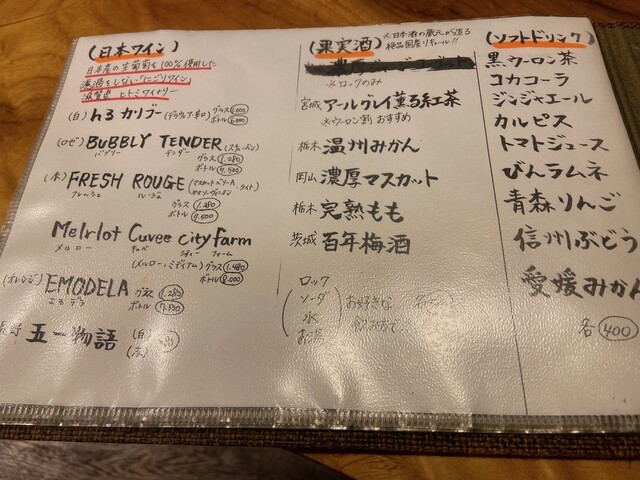 (日本ワイン)
日本産の生葡萄を100%使用した
濾過をしない"にごりワイン"
滋賀県 ヒトミワイナリー
(白) h3 カリブー (デラウェア・辛口) グラス 1,000
ボトル 6,000
(ロゼ) BUBBLY TENDER
バブリー テンダー
グラス 1,280
ボトル 7,500
(赤) FRESH ROUGE (マスカットベリーA ライト)
フレッシュ ルージュ
グラス 1,280
ボトル 7,500
Melrlot Cuvee cityfarm
メルロー キュベ シティー ファーム
(メルロー、ミディアム) グラス 1,480
ボトル 8,000
(オレンジ) EMODELA グラス 1,280
エモデラ ボトル 7,500
長野 五一物語 (白)
(赤)
(果実酒) ※日本酒の蔵元が造る
絶品国産リキュール!!
※ロックのみ
宮城 アールグレイ薫る紅茶
※ウーロン割 おすすめ
栃木 温州みかん
岡山 濃厚マスカット
栃木 完熟もも
茨城 百年梅酒
ロック
ソーダ
水
お湯
お好きな
飲み方で
(ソフトドリンク)
黒ウーロン茶
コカコーラ
ジンジャエール
カルピス
トマトジュース
びんラムネ
青森りんご
信州ぶどう
愛媛みかん
各 400